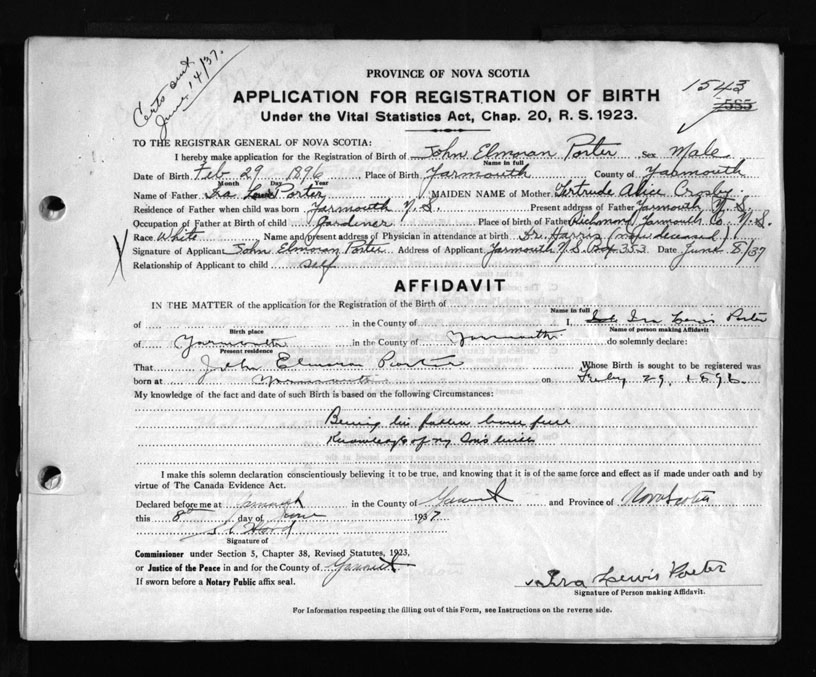 Certs sent
June 14/37.
PROVINCE OF NOVA SCOTIA
1543
7585
APPLICATION FOR REGISTRATION OF BIRTH
Under the Vital Statistics Act, Chap. 20, R. S. 1923.
TO THE REGISTRAR GENERAL OF NOVA SCOTIA:
I hereby make application for the Registration of Birth of John Elmoran Porter Sex Male
Name in full
Date of Birth Feb 29 1896 Place of Birth Yarmouth County of Yarmouth
Month Day Year
Name of Father Ira Lewis Porter MAIDEN NAME of Mother Gertrude Alice Crosby
Residence of Father when child was born Yarmouth N.S. Present address of Father Yarmouth N.S.
Occupation of Father at Birth of child Gardener Place of birth of Father Richmond Yarmouth Co. N.S.
Race White Name and present address of Physician in attendance at birth Dr. Harris (now deceased)
X Signature of Applicant John Elmoran Porter Address of Applicant Yarmouth N.S. Box 353 Date June 8/37
Relationship of Applicant to child self
AFFIDAVIT
IN THE MATTER of the application for the Registration of the Birth of
Name in full
of in the County of I, Ira Lewis Porter
Birth place Name of person making Affidavit
of Yarmouth in the County of Yarmouth do solemnly declare:
Present residence
That John Elmoran Porter Whose Birth is sought to be registered was
born at Yarmouth on Feby 29, 1896.
My knowledge of the fact and date of such Birth is based on the following Circumstances:
Being his father have full
Knowledge of my Son's birth
I make this solemn declaration conscientiously believing it to be true, and knowing that it is of the same force and effect as if made under oath and by
virtue of The Canada Evidence Act.
Declared before me at Yarmouth in the County of Yarmouth and Province of Nova Scotia
this 8th day of June 1937
Signature of
Commissioner under Section 5, Chapter 38, Revised Statutes, 1923,
or Justice of the Peace in and for the County of Yarmouth
If sworn before a Notary Public affix seal.
Ira Lewis Porter
Signature of Person making Affidavit.
For Information respecting the filling out of this Form, see Instructions on the reverse side.